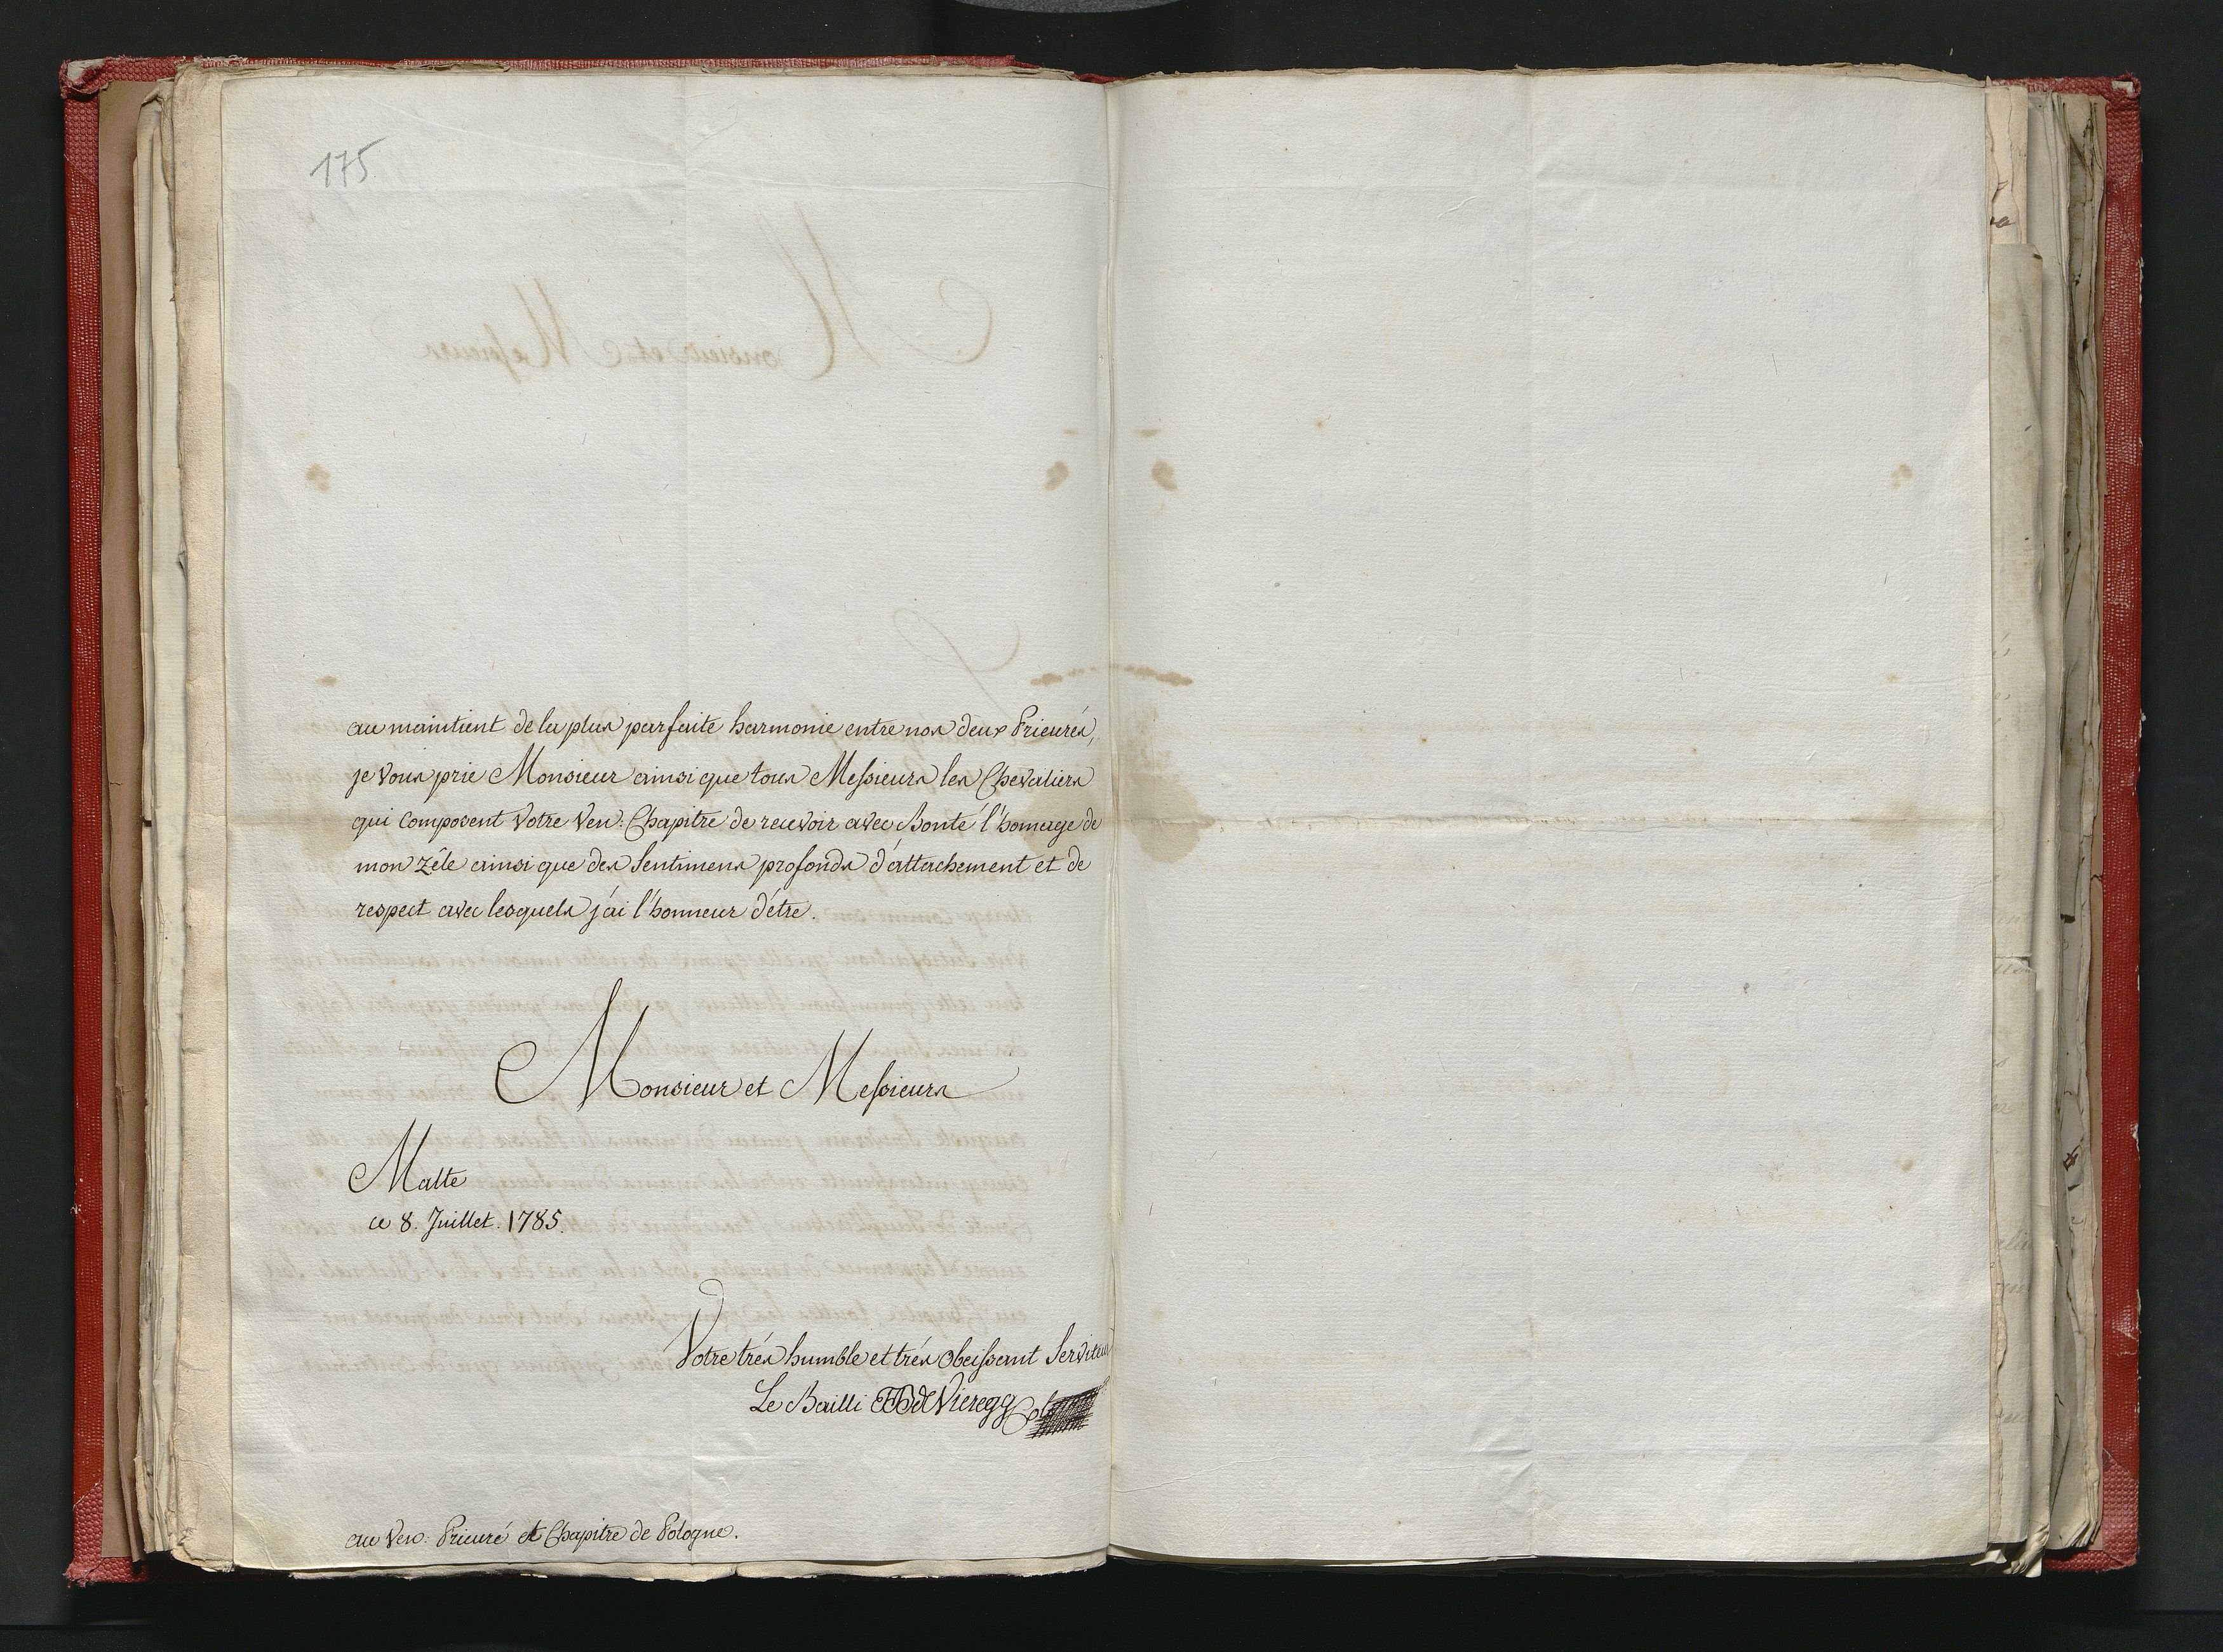 175
au maintient de la plus parfaite harmonie entre nos deux Prieurés,
je vous prie Monsieur ainsi que tous Messieurs les Chevaliers
qui composent votre Ven: Chapitre de recevoir avec Bonté l'homage de
mon zêle ainsi que des Sentimens profonds d'attachement et de
respect avec lesquels j'ai l'honneur d'étre.
Monsieur et Messieurs
Malte
ce 8. Juillet. 1785.
Votre trés humble et trés obeissant Serviteur
Le Bailli de Vieregg
au Ven: Prieuré et Chapitre de Pologne.